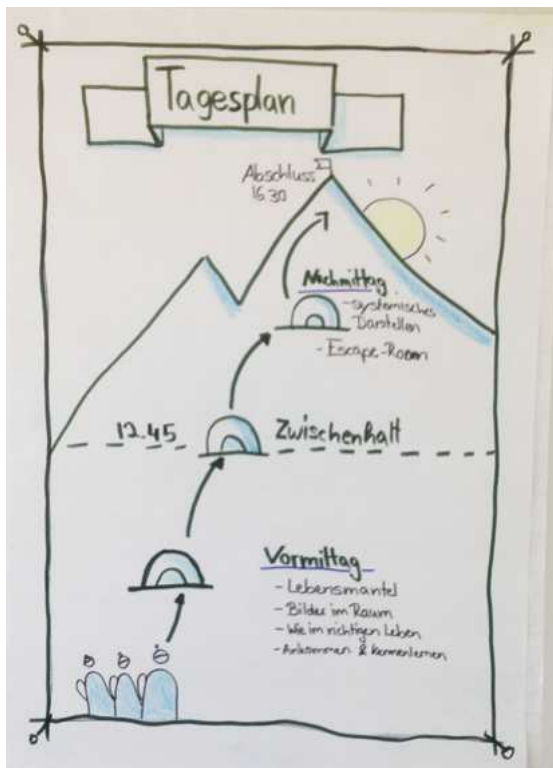 Tagesplan
Abschluss
16.30
Nachmittag
- systemisches
Darstellen
- Escape-Room
12.45
Zwischenhalt
Vormittag
- Lebensmantel
- Bilder im Raum
- Wie im richtigen Leben
- Ankommen & kennenlernen